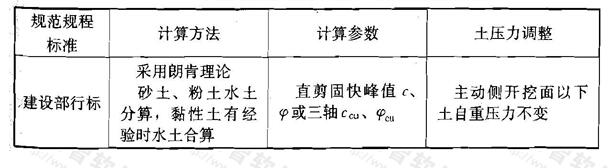 规范规程
标准
计算方法
计算参数
土压力调整
建设部行标
采用朗肯理论
砂土、粉土水土
分算，黏性土有经
验时水土合算
直剪固快峰值 c、
φ或三轴 c_cu、φ_cu
主动侧开挖面以下
土自重压力不变